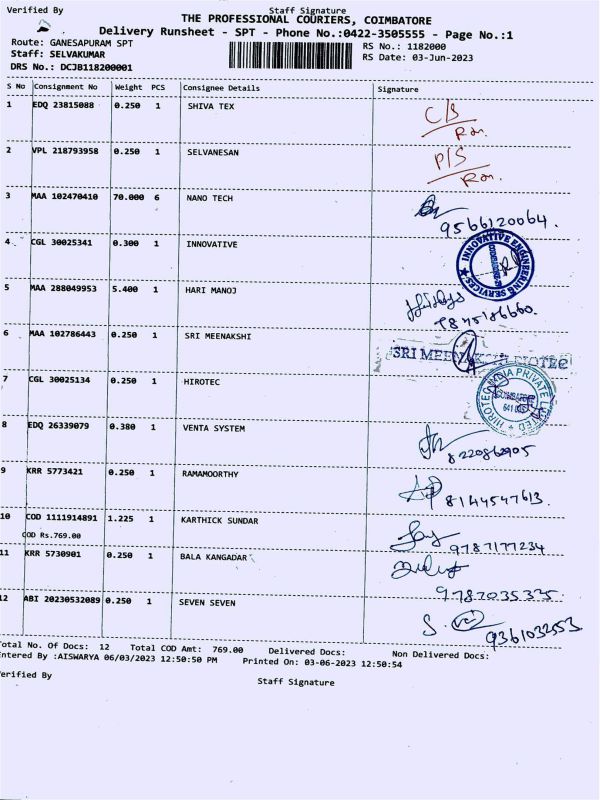 Verified By Staff Signature
THE PROFESSIONAL COURIERS, COIMBATORE
Delivery Runsheet - SPT - Phone No.:0422-3505555 - Page No.:1
Route: GANESAPURAM SPT RS No.: 1182000
Staff: SELVAKUMAR RS Date: 03-Jun-2023
DRS No.: DCJB118200001
S No Consignment No Weight PCS Consignee Details Signature
1 EDQ 23815088 0.250 1 SHIVA TEX C/S
2 VPL 218793958 0.250 1 SELVANESAN P/S
3 MAA 102470410 70.000 6 NANO TECH
9566120064.
4 CGL 30025341 0.300 1 INNOVATIVE INNOVATIVE ENGINEERING SERVICES
5 MAA 288049953 5.400 1 HARI MANOJ
9845186660.
6 MAA 102786443 0.250 1 SRI MEENAKSHI
SRI MEENAKSHI
7 CGL 30025134 0.250 1 HIROTEC HIROTEC INDIA PRIVATE LIMITED
8 EDQ 26339079 0.380 1 VENTA SYSTEM
9 KRR 5773421 0.250 1 RAMAMOORTHY
8144547613.
10 COD 1111914891 1.225 1 KARTHICK SUNDAR
COD Rs.769.00 9787177234
11 KRR 5730901 0.250 1 BALA KANGADAR
9787035335.
12 ABI 20230532089 0.250 1 SEVEN SEVEN
9361032553
Total No. Of Docs: 12 Total COD Amt: 769.00 Delivered Docs: Non Delivered Docs:
Entered By :AISWARYA 06/03/2023 12:50:50 PM Printed On: 03-06-2023 12:50:54
Verified By Staff Signature